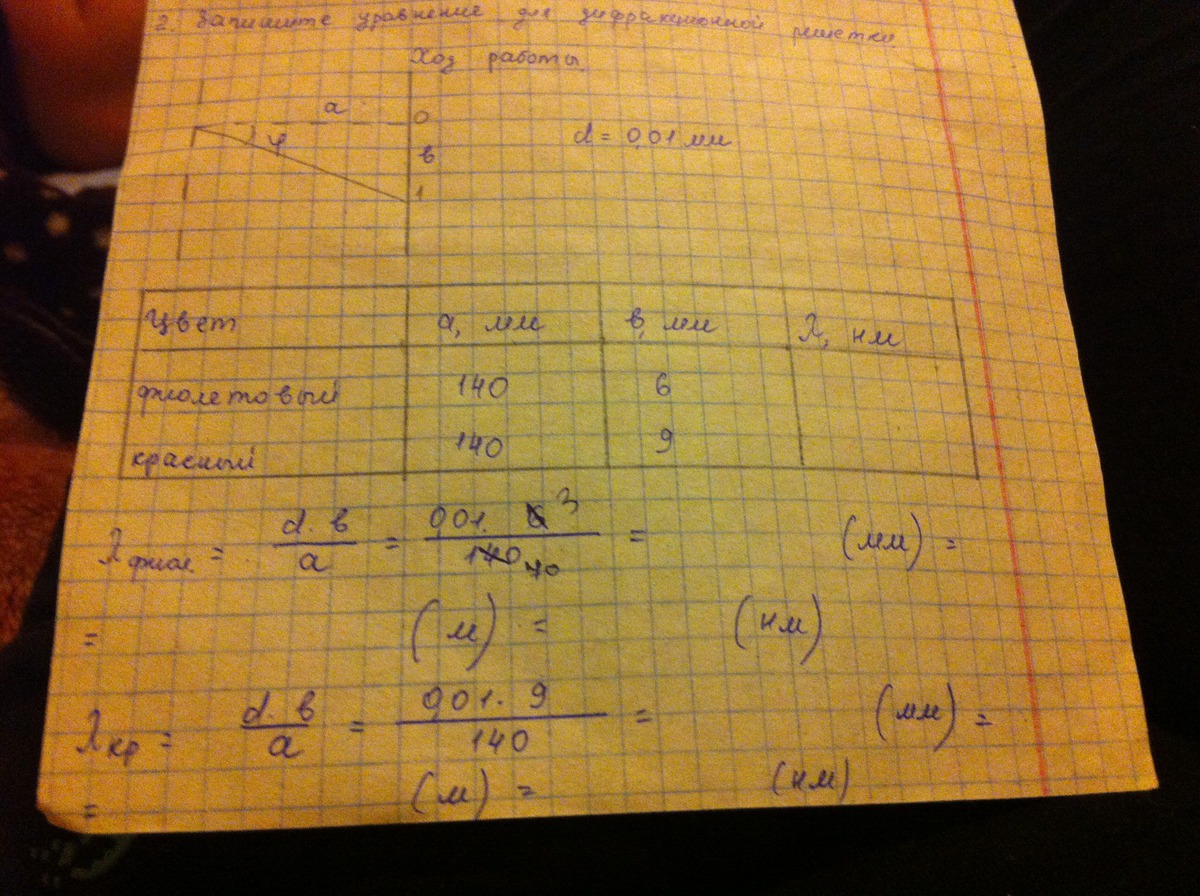 2. Запишите уравнение для дифракционной решетки
Ход работы
a
0
φ
в
1
d = 0,01 мм
Цвет a, мм в, мм λ, нм
фиолетовый 140 6
красный 140 9
λфиол = d · в / a = 0,01 · 6 3 / 140 70 = (мм) =
= (м) = (нм)
λкр = d · в / a = 0,01 · 9 / 140 = (мм) =
= (м) = (нм)